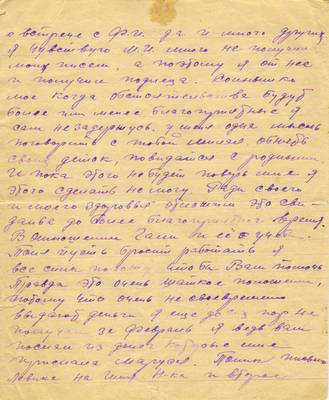 о встрече с Ф.И. да и много других
я чувствую М.И. много не получил
моих писем, а поэтому я от нее
и получил Солнышко
мое когда обстоятельства будут
более или менее благоприятные я
сам не задержусь, у меня одна мысль
поговорить с тобой милая, обнять
своих деток, повидаться с родными
И пока этого не будет
этого сделать не могу. Ради своего
и моего здоровья отложим это сви-
данье до более благоприятного время.
В отношении Гали и её учебы
Моня пусть бросит работать я
все силы положу чтоби Вам помочь
Правда это очень шаткое положение,
потому что очень не своевременно
выдают деньги я еще до сих пор не
получил за февраль я ведь вам
послал из денег которые мне
прислала Маруся. Пошли письмо
на имя Н-ка и второе